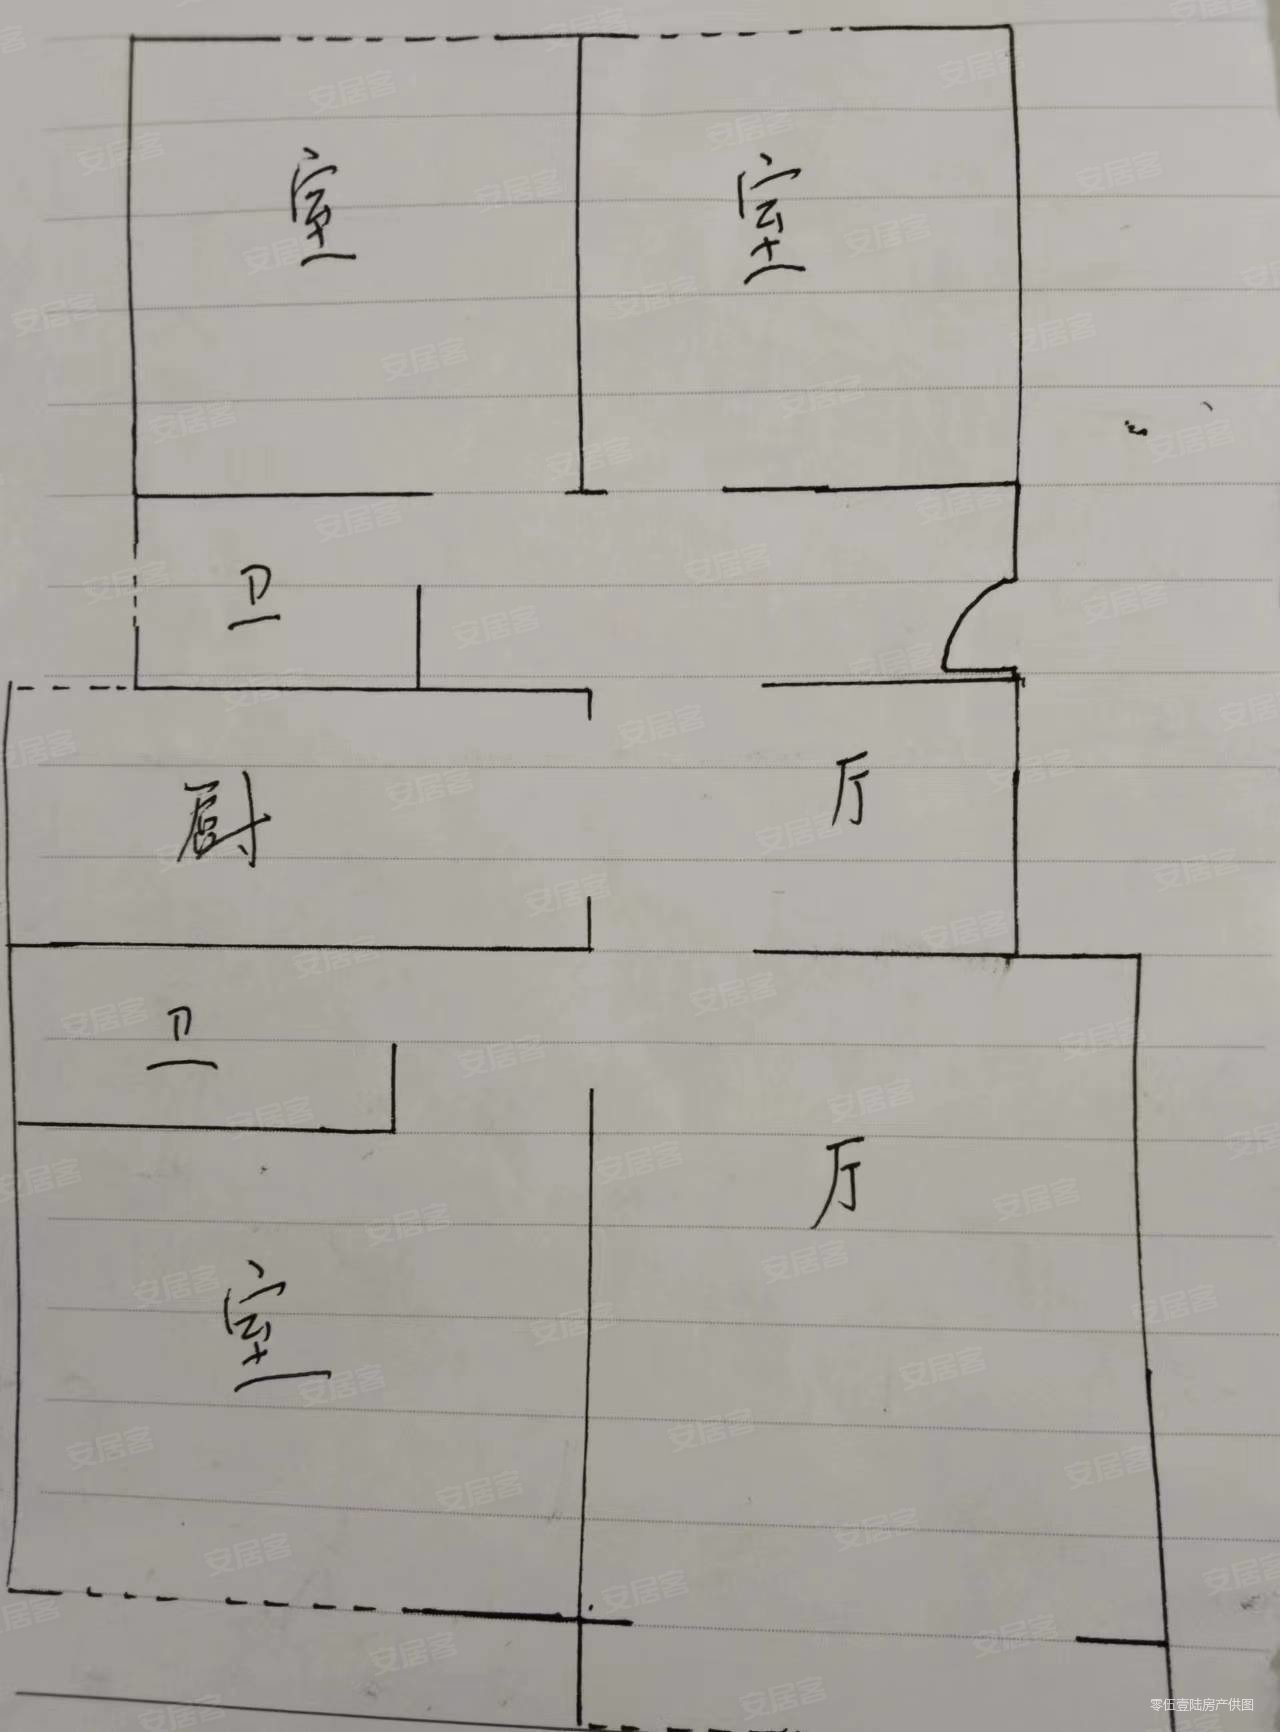 室 室
卫
厨 厅
卫
厅
室
安居客
零伍壹陆房产供图